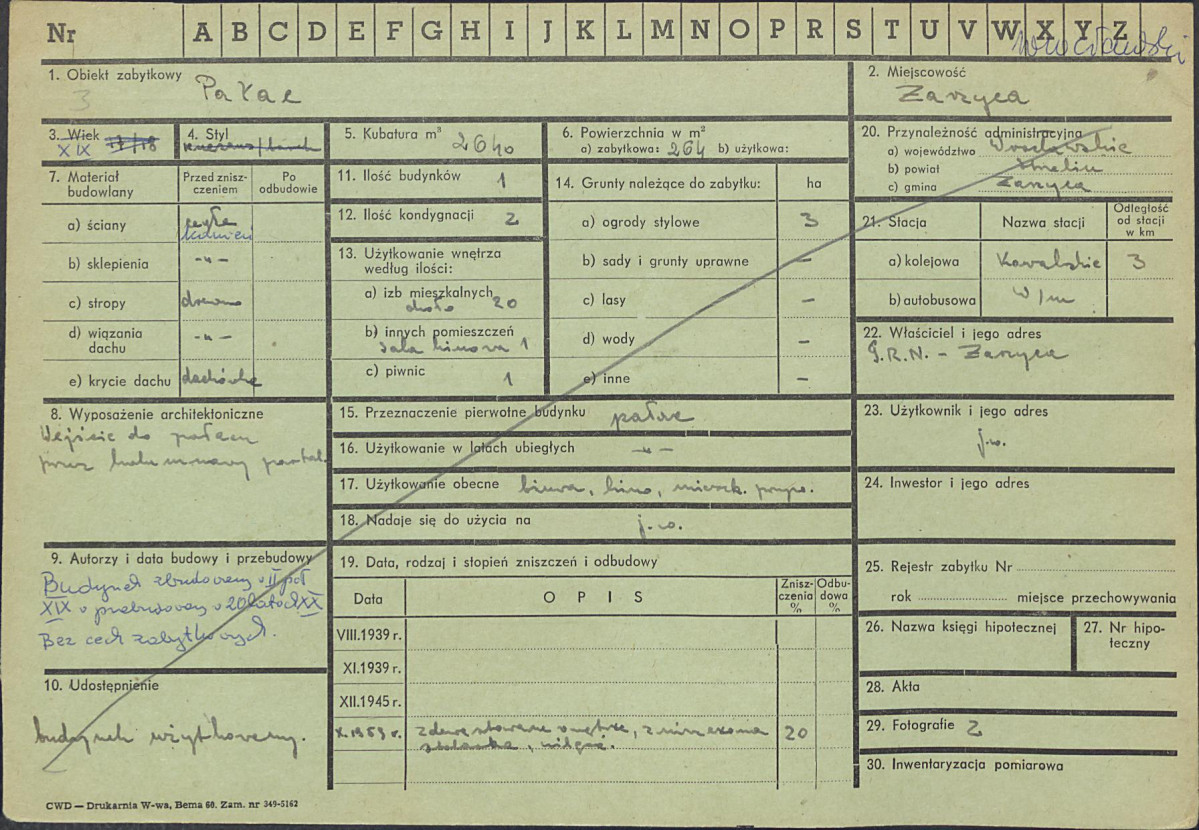 Nr A B C D E F G H I J K L M N O P R S T U V W X Y Z
1. Obiekt zabytkowy
3 Pałac
2. Miejscowość
Zarzyca
3. Wiek
XIX 17/18
4. Styl
5. Kubatura m³ 2640
6. Powierzchnia w m²
a) zabytkowa: 264 b) użytkowa:
20. Przynależność administracyjna
a) województwo Wrocławskie
b) powiat Strzelin
c) gmina Zarzyca
7. Materiał budowlany
Przed znisz-
czeniem
Po
odbudowie
a) ściany cegła
kamień
b) sklepienia -„-
c) stropy drewno
d) wiązania
dachu -„-
e) krycie dachu dachówka
11. Ilość budynków 1
12. Ilość kondygnacji 2
13. Użytkowanie wnętrza
według ilości:
a) izb mieszkalnych
około 20
b) innych pomieszczeń
sala kinowa 1
c) piwnic 1
14. Grunty należące do zabytku: ha
a) ogrody stylowe 3
b) sady i grunty uprawne –
c) lasy –
d) wody –
e) inne –
21. Stacja Nazwa stacji
Odległość
od stacji
w km
a) kolejowa Kowalskie 3
b) autobusowa w/m
22. Właściciel i jego adres
G.R.N. - Zarzyca
8. Wyposażenie architektoniczne
Wejście do pałacu
przez kolumnowy portal.
15. Przeznaczenie pierwotne budynku pałac
16. Użytkowanie w latach ubiegłych -„-
17. Użytkowanie obecne biura, kino, mieszk. pryw.
18. Nadaje się do użycia na j.w.
23. Użytkownik i jego adres
j.w.
24. Inwestor i jego adres
9. Autorzy i data budowy i przebudowy
Budynek zbudowany w II poł
XIX w przebudowany w 20 latach XX
Bez cech zabytkowych.
19. Data, rodzaj i stopień zniszczeń i odbudowy
Data OPIS
Znisz-
czenia
%
Odbu-
dowa
%
VIII.1939 r.
XI.1939 r.
XII.1945 r.
X.1959 r. Zdewastowane wnętrze, zniszczona 20
stolarka, wilgoć.
25. Rejestr zabytku Nr
rok miejsce przechowywania
26. Nazwa księgi hipotecznej
27. Nr hipo-
teczny
10. Udostępnienie
budynek użytkowany.
28. Akta
29. Fotografie 2
30. Inwentaryzacja pomiarowa
CWD — Drukarnia W-wa, Bema 60. Zam. nr 349-5162